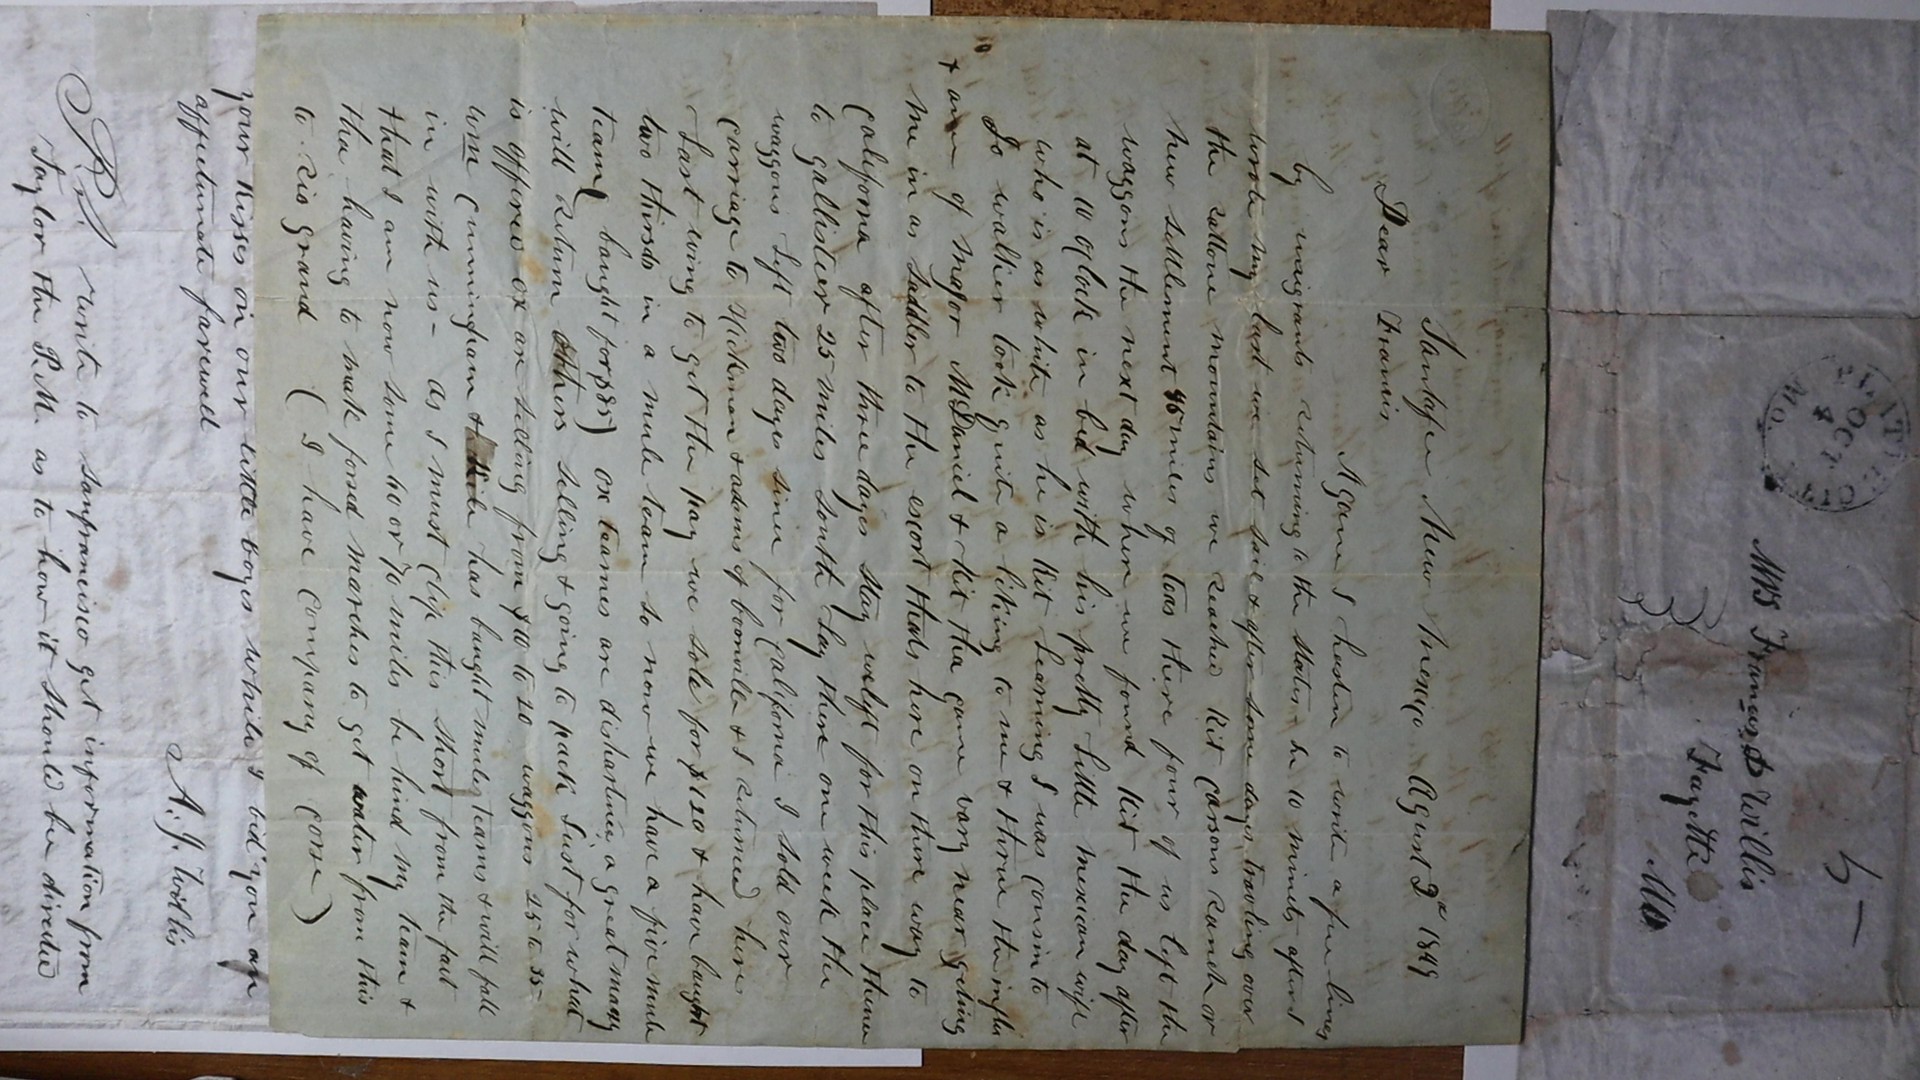 Santafe New Mexico August 2d 1849
Dear Francis
Agane I hasten to write a few lines
by emigrants returning to the states he 10 minits after I
wrote my last we set sail & after some days travling over
the rattone mountains we reached Kit Carsons ranch or
New settlement 45 miles of taos there four of us left the
waggons the next day when we found Kit the day after
at 10 oclock in bed with his pretty little mexican wife
who is as white as he is Kit Learning I was cousin to
Jo walker took quite a liking to me & throue the influ
of Major McDaniel & Kit tha came vary near geting
me in as Saddler to the escort thats here on there way to
California after three days stay we left for this place thence
to gallisteer 25 miles South Lay there one week the
waggons Left two days since for California I sold our
carriage to Hickman & adams of boonvile & I returned here
Last eving to get the pay we sold for $120 & have bought
two thirds in a mule team so now we have a five mule
team bought for $85) ox teames are disharting a great many
will return others selling & going to pack Just for what
is offered ox are selling from $10 to 20 waggons 25 to 35-
Wm Cunningham & has bought mules teams & will fall
in with us- as I must close this short from the fact
that I am now some 60 or 70 miles be hind my team &
tha having to make forsed marches to get water from this
to rio grand (I have company of corse)
your kisses on our little boyes while I bid you an
affectunate farewell
A. J. Willis
P.S. write to Sanfrancisco get information from
Taylor the P.M. as to how it should be directed
PLATTE CITY
OCT
4
Mo.
5
Mrs Francis D Willis
Fayette
Mo